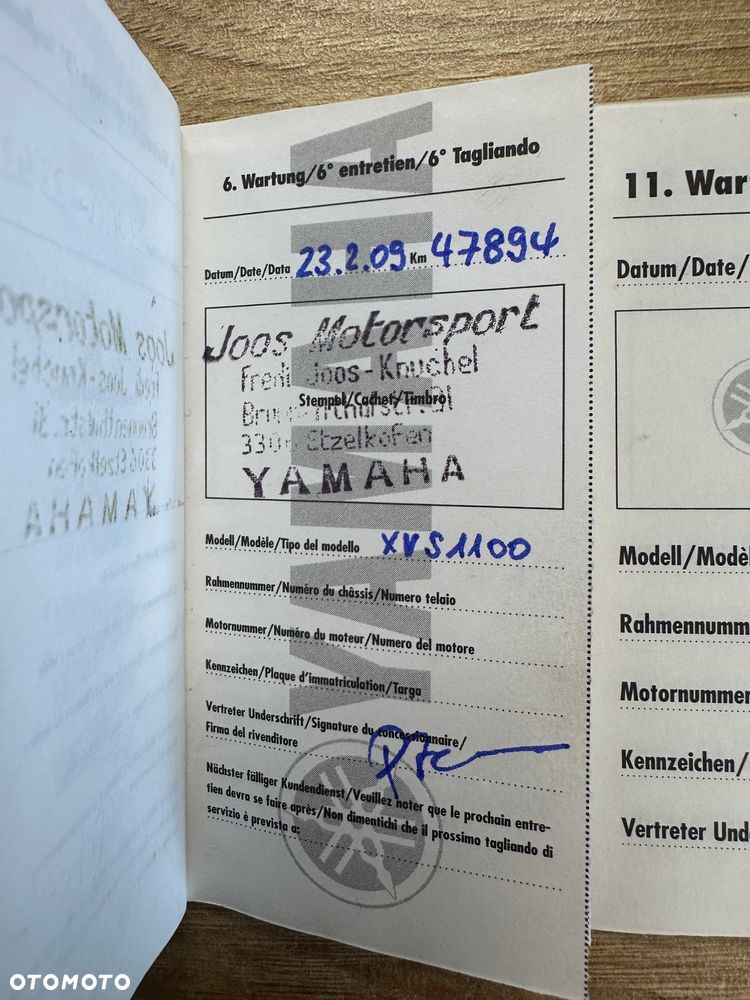 6. Wartung/6° entretien/6° Tagliando
Datum/Date/Data 23.2.09 Km 47894
Joos Motorsport
Fredi Joos-Knuchel
Stempel/Cachet/Timbro
3306 Etzelkofen
YAMAHA
Modell/Modèle/Tipo del modello XVS1100
Rahmennummer/Numéro du châssis/Numero telaio
Motornummer/Numéro du moteur/Numero del motore
Kennzeichen/Plaque d'immatriculation/Targa
Vertreter Underschrift/Signature du concessionnaire/
Firma del rivenditore
Nächster fälliger Kundendienst/Veuillez noter que le prochain entre-
tien devra se faire après/Non dimentichi che il prossimo tagliando di
servizio è prevista a:
YAMAHA
11. War
Datum/Date/
Modell/Modè
Rahmennumm
Motornummer
Kennzeichen/
Vertreter Und
OTOMOTO